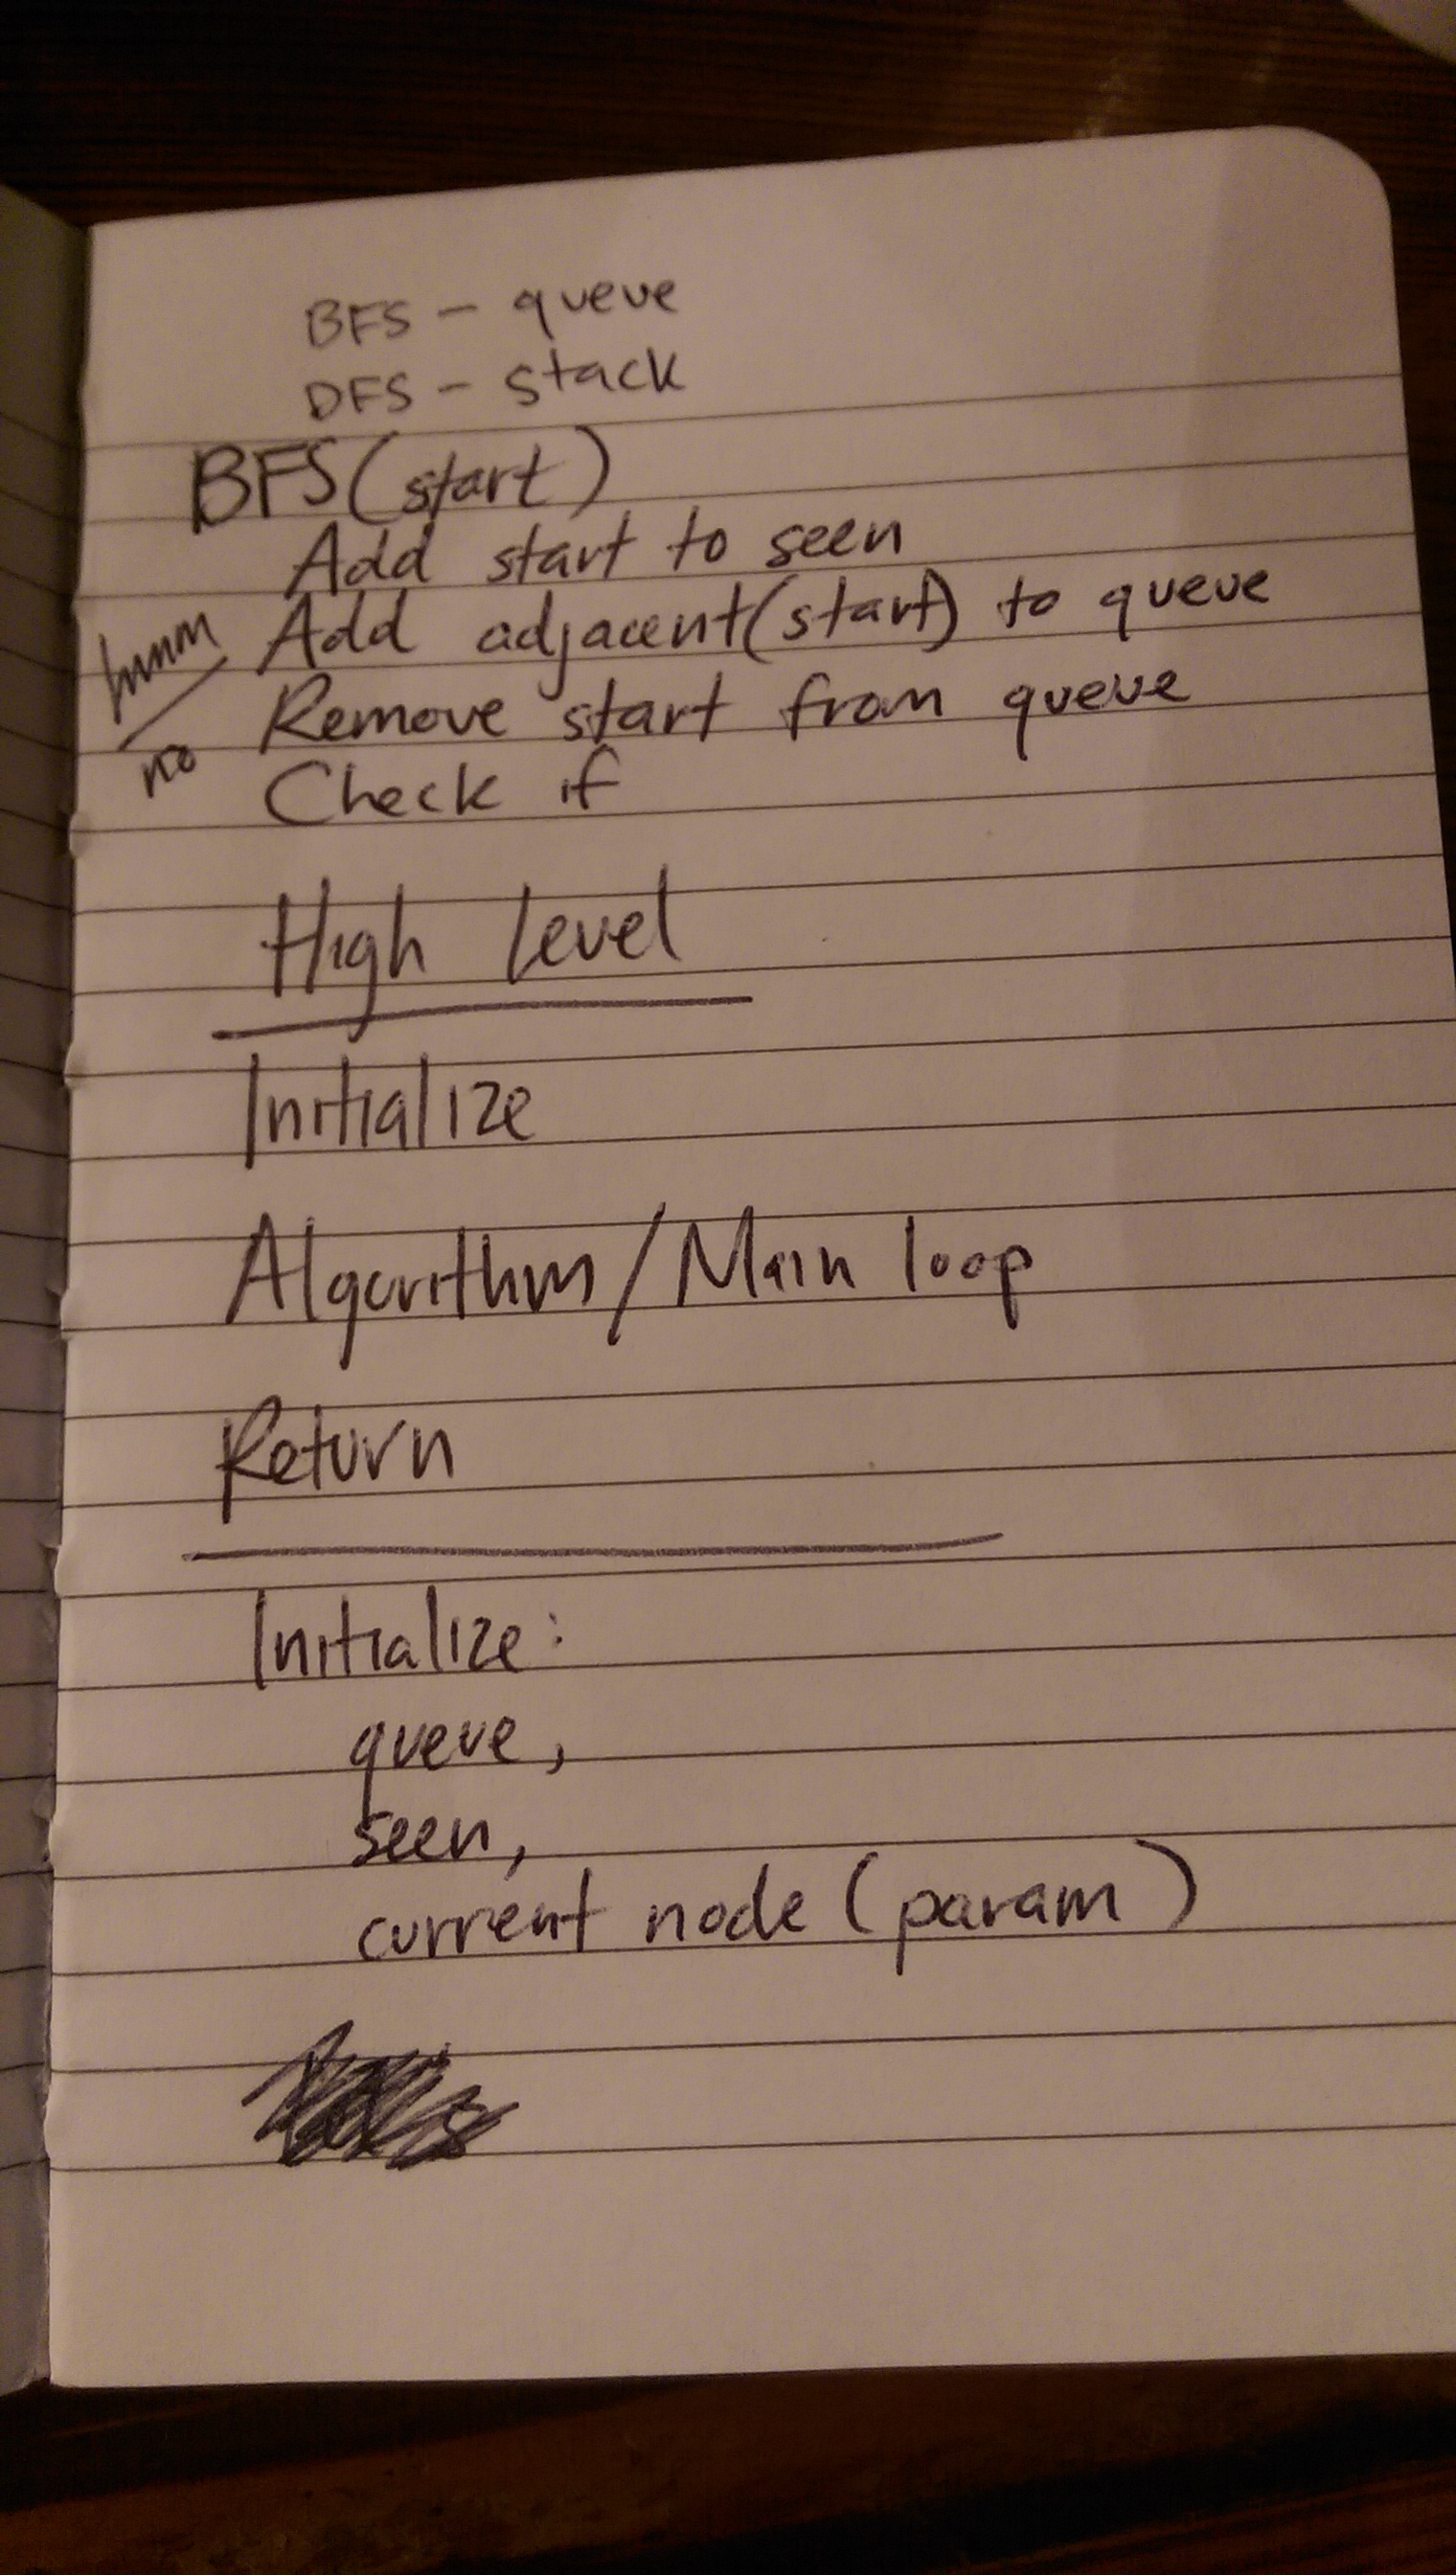 BFS – queue
DFS – stack
BFS(start)
Add start to seen
hmm Add adjacent(start) to queue
no Remove start from queue
Check if
High Level
Initialize
Algorithm/Main loop
Return
Initialize:
queue,
seen,
current node (param)